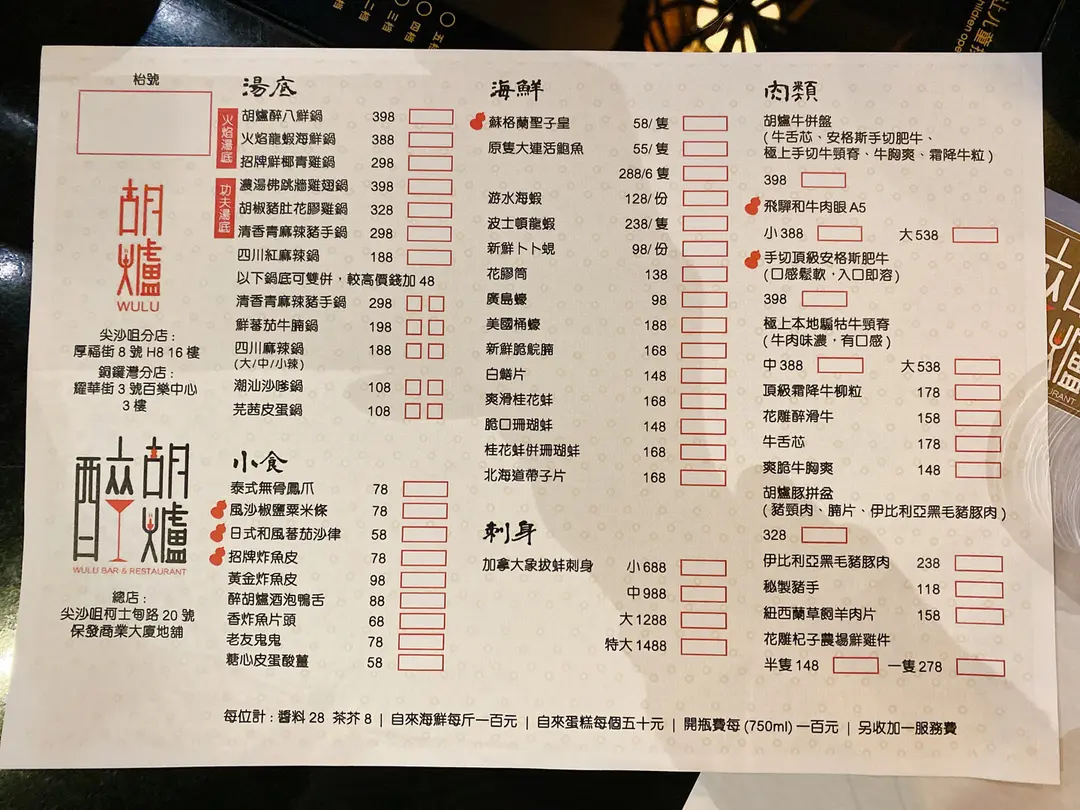 五檔
四檔
三檔
二檔
children ope
枱號
胡爐
WULU
尖沙咀分店：
厚福街8號H8 16樓
銅鑼灣分店：
耀華街3號百樂中心
3樓
醉胡爐
WULU BAR & RESTAURANT
總店：
尖沙咀柯士甸路20號
保發商業大廈地舖
湯底
火焰湯底
胡爐醉八鮮鍋 398
火焰龍蝦海鮮鍋 388
招牌鮮椰青雞鍋 298
功夫湯底
濃湯佛跳牆雞翅鍋 398
胡椒豬肚花膠雞鍋 328
清香青麻辣豬手鍋 298
四川紅麻辣鍋 188
以下鍋底可雙併，較高價錢加48
清香青麻辣豬手鍋 298
鮮蕃茄牛腩鍋 198
四川麻辣鍋 188
(大/中/小辣)
潮汕沙嗲鍋 108
芫茜皮蛋鍋 108
小食
泰式無骨鳳爪 78
風沙椒鹽粟米條 78
日式和風蕃茄沙律 58
招牌炸魚皮 78
黃金炸魚皮 98
醉胡爐酒泡鴨舌 88
香炸魚片頭 68
老友鬼鬼 78
糖心皮蛋酸薑 58
海鮮
蘇格蘭聖子皇 58/隻
原隻大連活鮑魚 55/隻
288/6隻
游水海蝦 128/份
波士頓龍蝦 238/隻
新鮮卜卜蜆 98/份
花膠筒 138
廣島蠔 98
美國桶蠔 188
新鮮脆鯇腩 168
白鱔片 148
爽滑桂花蚌 168
脆口珊瑚蚌 148
桂花蚌併珊瑚蚌 168
北海道帶子片 168
刺身
加拿大象拔蚌刺身 小688
中988
大1288
特大1488
肉類
胡爐牛併盤
(牛舌芯、安格斯手切肥牛、
極上手切牛頸脊、牛胸爽、霜降牛粒)
398
飛驒和牛肉眼A5
小388 大538
手切頂級安格斯肥牛
(口感鬆軟，入口即溶)
398
極上本地騸牯牛頸脊
(牛肉味濃，有口感)
中388 大538
頂級霜降牛柳粒 178
花雕醉滑牛 158
牛舌芯 178
爽脆牛胸爽 148
胡爐豚拼盆
(豬頸肉、腩片、伊比利亞黑毛豬豚肉)
328
伊比利亞黑毛豬豚肉 238
秘製豬手 118
紐西蘭草飼羊肉片 158
花雕杞子農場鮮雞件
半隻148 一隻278
每位計：醬料28 茶芥8 | 自來海鮮每斤一百元 | 自來蛋糕每個五十元 | 開瓶費每(750ml)一百元 | 另收加一服務費